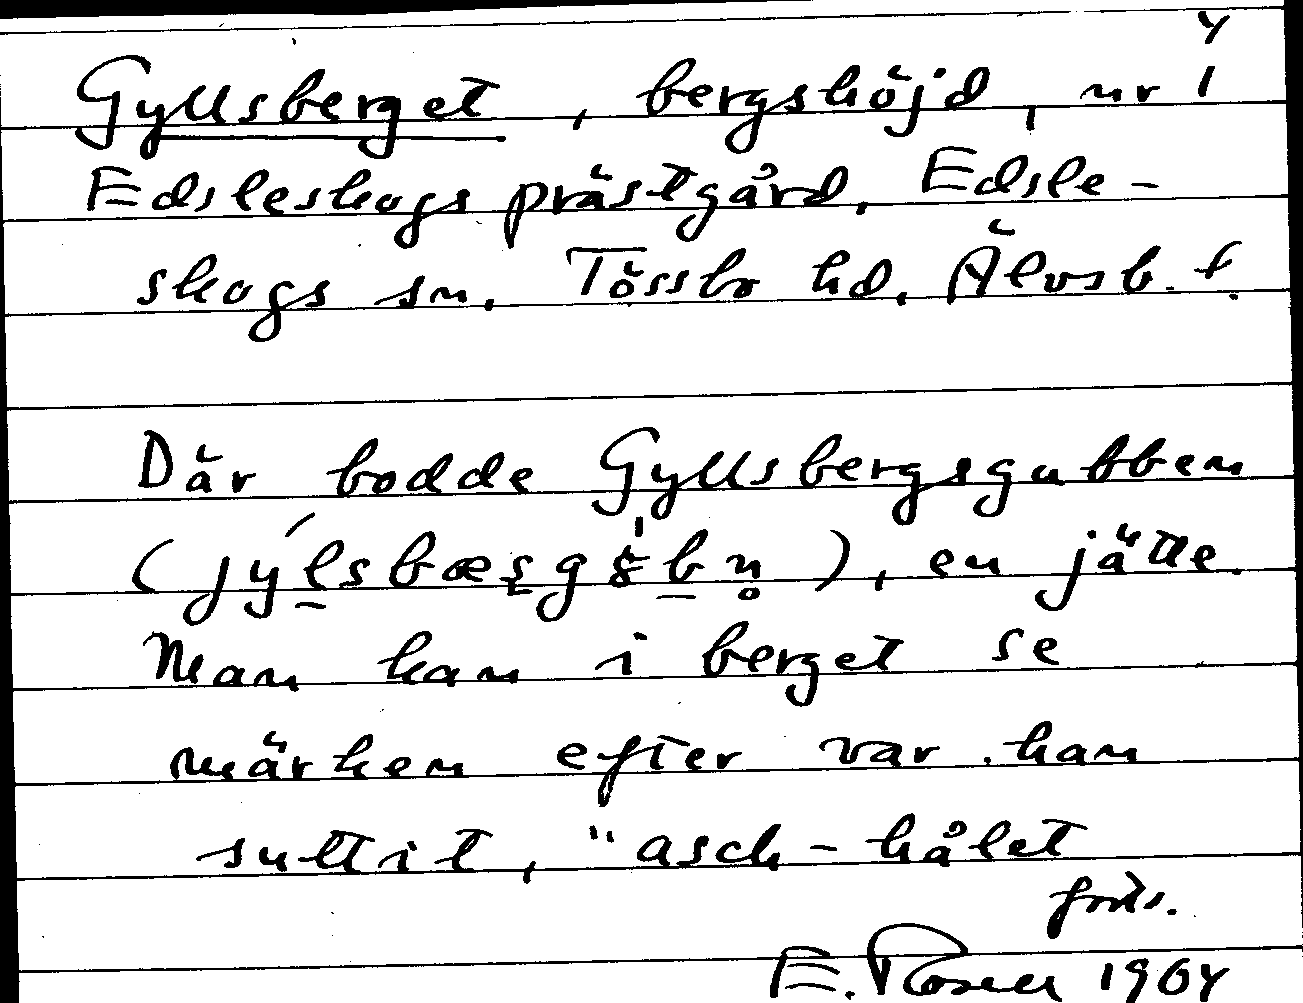 4
Gyllsberget, bergshöjd, nr 1
Edsleskogs prästgård, Edsle-
skogs sn. Tössbo hd. Älvsb. l.
Där bodde Gyllsbergsgubben
en jätte.
Man kan i berget se
märken efter var han
suttit, "asch-hålet
forts.
E. Rosell 1964